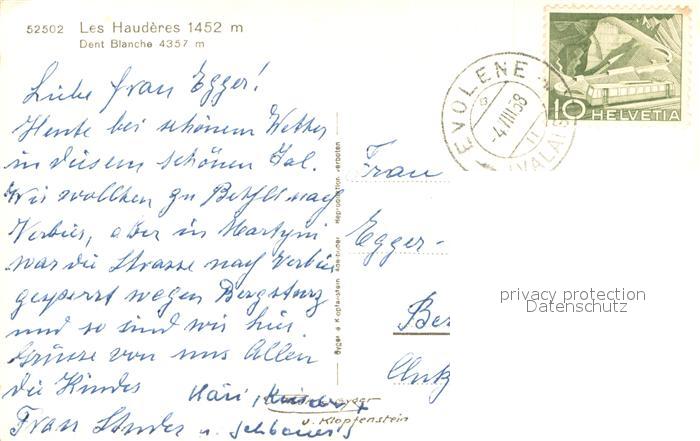 52502 Les Haudères 1452 m
Dent Blanche 4357 m
Liebe Frau Egger!
Heute bei schönem Wetter
in diesem schönen Tal.
Wir wollten zu Bethli nach
Verbier, aber in Martyni
war die Strasse nach Verbier
gesperrt wegen Bergsturz
und so sind wir hier
Grüsse von uns Allen
die Kinder
Frau Studer u.
u. Klopfenstein
Gyger & Klopfenstein Adelboden Reproduktion verboten
EVOLENE
(VALAIS)
HELVETIA
10
Frau
Egger-
privacy protection
Datenschutz